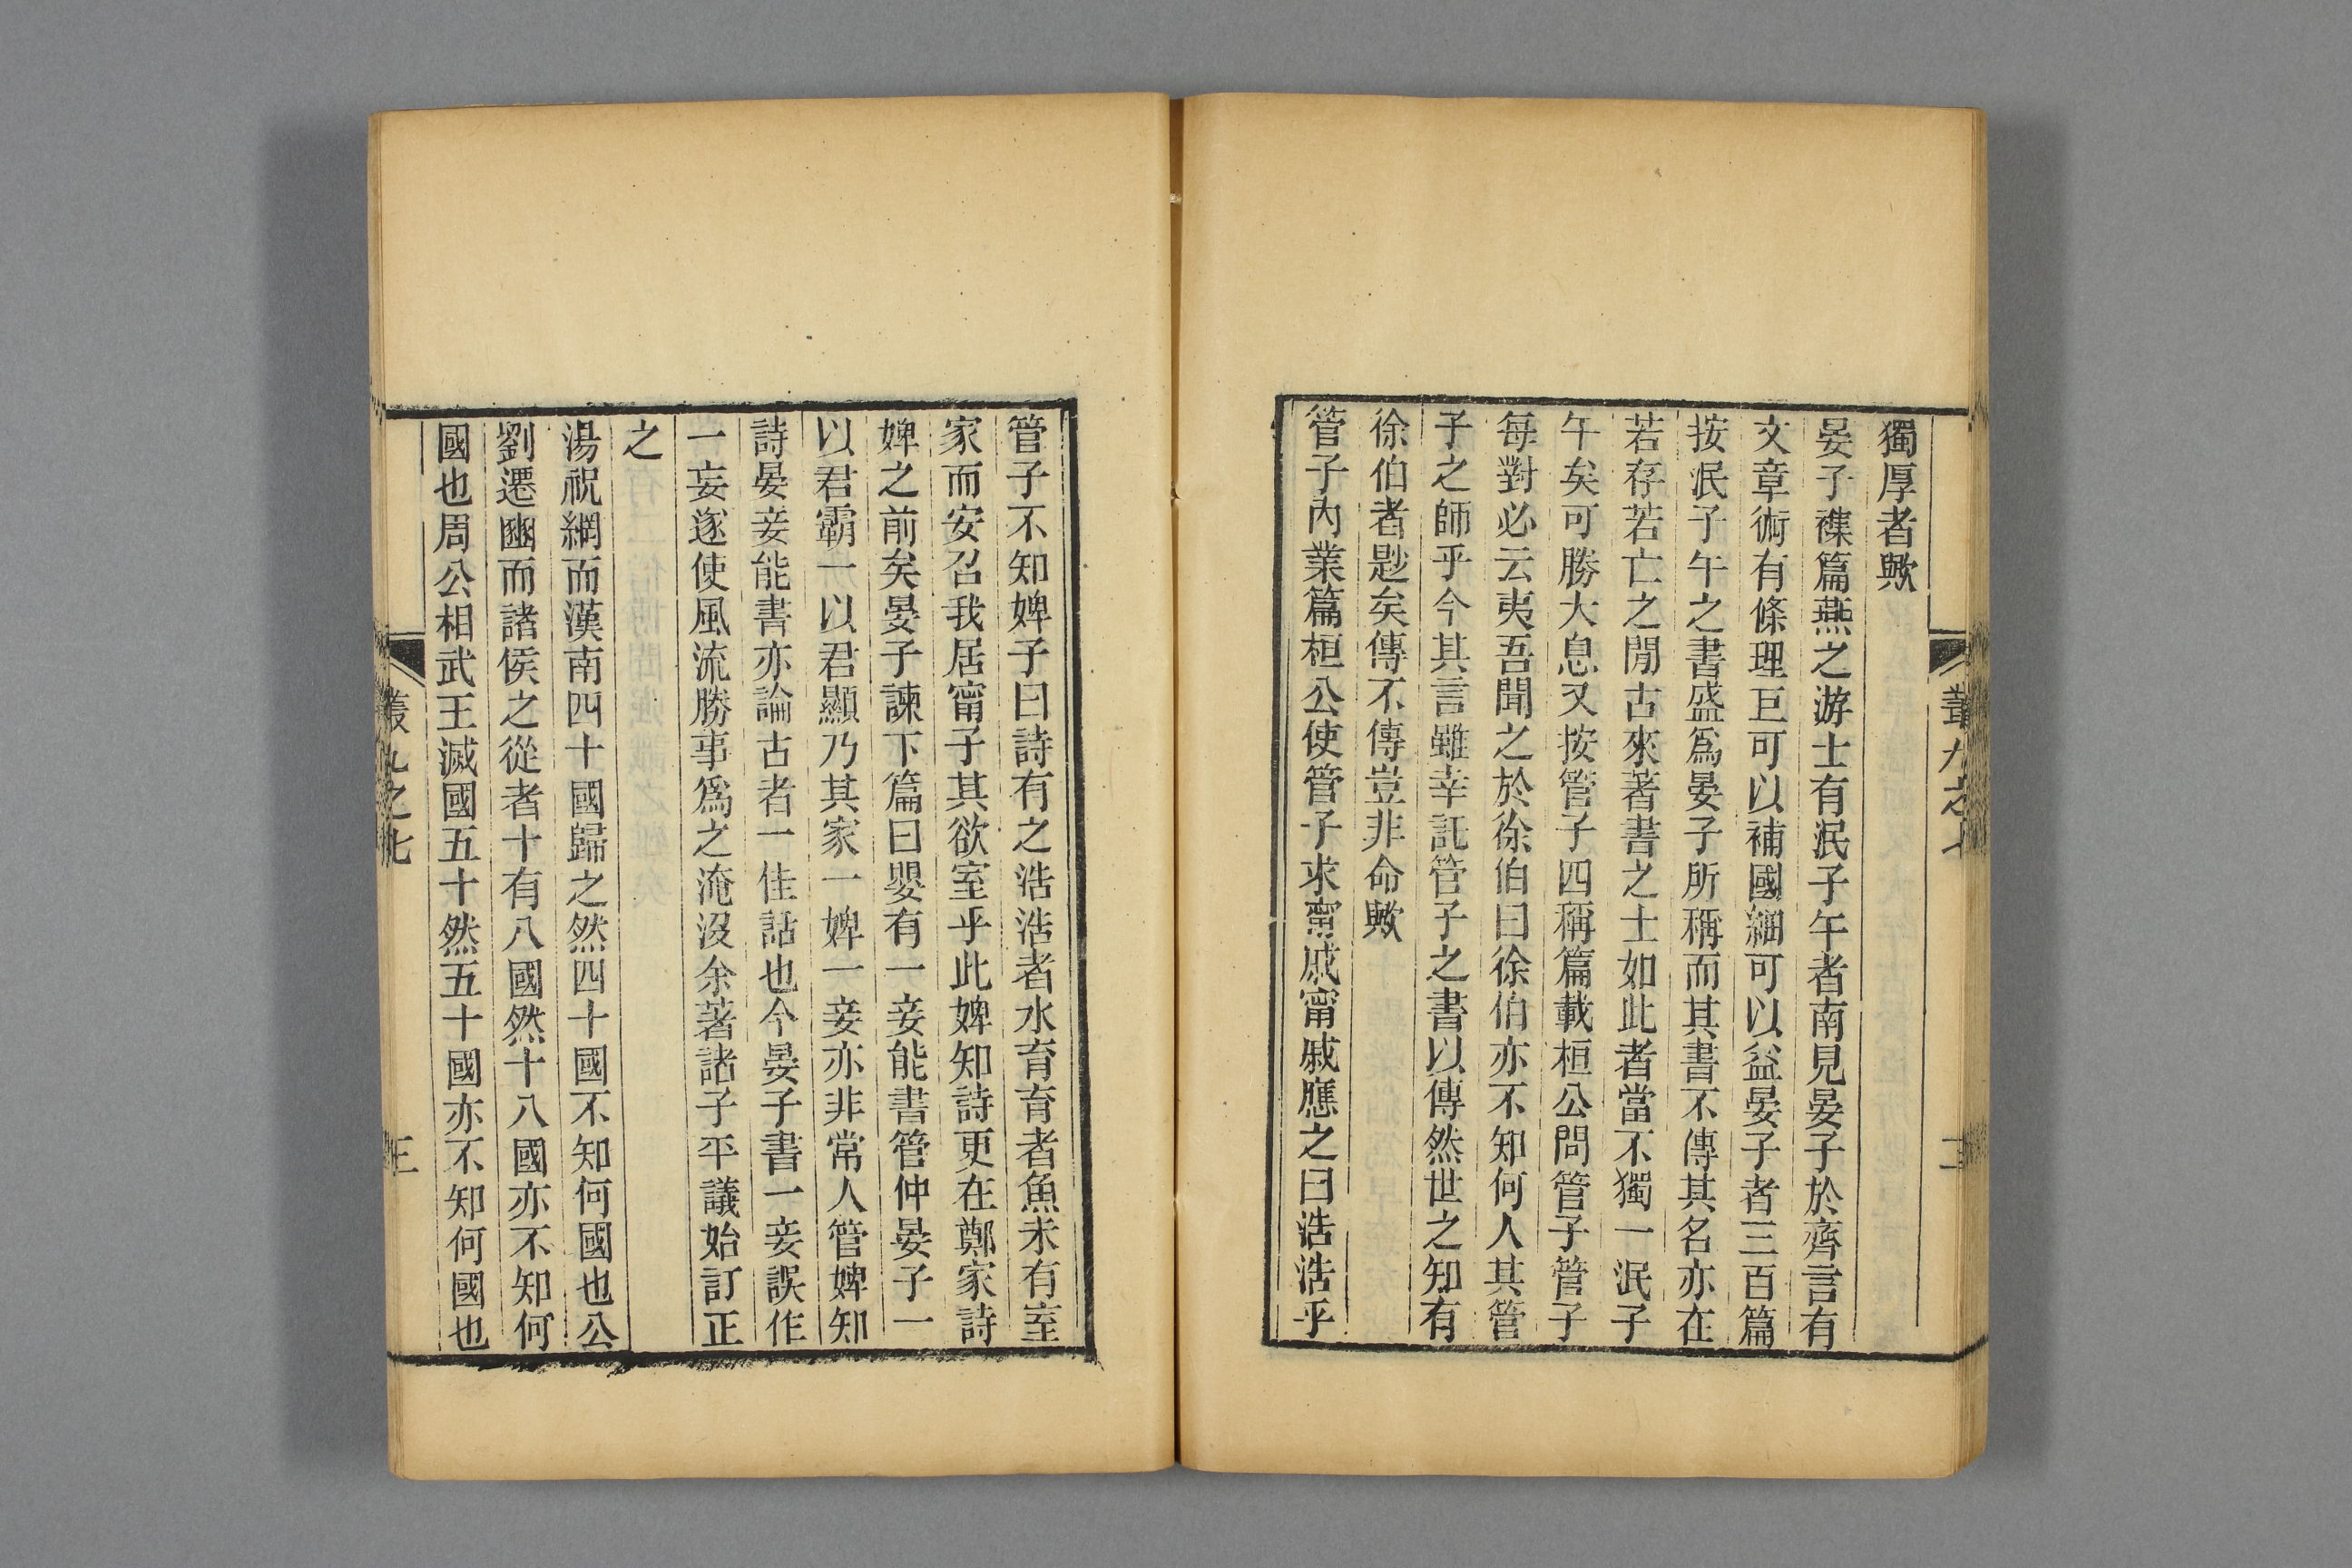 獨厚者歟
晏子襍篇燕之游士有泯子午者南見晏子於齊言有
文章術有條理巨可以補國細可以益晏子者三百篇
按泯子午之書盛爲晏子所稱而其書不傳其名亦在
若存若亡之閒古來著書之士如此者當不獨一泯子
午矣可勝大息又按管子四稱篇載桓公問管子管子
每對必云夷吾聞之於徐伯曰徐伯亦不知何人其管
子之師乎今其言雖幸託管子之書以傳然世之知有
徐伯者尟矣傳不傳豈非命歟
管子內業篇桓公使管子求甯戚甯戚應之曰浩浩乎
叢九之七
二
管子不知婢子曰詩有之浩浩者水育育者魚未有室
家而安召我居甯子其欲室乎此婢知詩更在鄭家詩
婢之前矣晏子諫下篇曰嬰有一妾能書管仲晏子一
以君霸一以君顯乃其家一婢一妾亦非常人管婢知
詩晏妾能書亦論古者一佳話也今晏子書一妾誤作
一妄遂使風流勝事爲之淹沒余著諸子平議始訂正
之
湯祝網而漢南四十國歸之然四十國不知何國也公
劉遷豳而諸侯之從者十有八國然十八國亦不知何
國也周公相武王滅國五十然五十國亦不知何國也
叢九之七
三